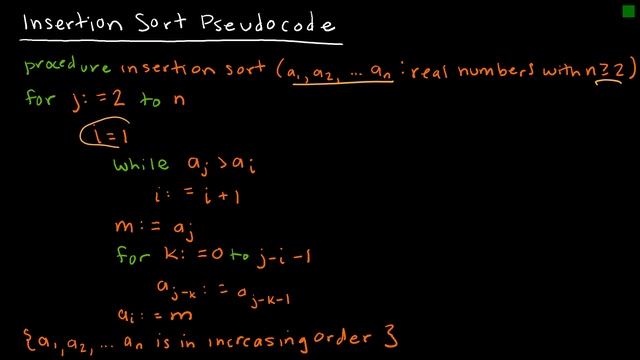 Insertion Sort Pseudocode
procedure insertion sort (a₁, a₂, ... aₙ : real numbers with n ≥ 2)
for j := 2 to n
i = 1
while aⱼ > aᵢ
i := i + 1
m := aⱼ
for k := 0 to j-i-1
a_{j-k} := a_{j-k-1}
aᵢ := m
{a₁, a₂, ... aₙ is in increasing order}